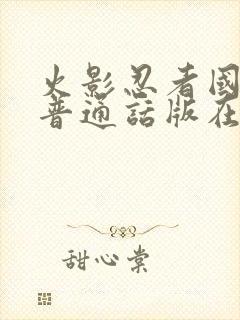 火影忍者国
普通話版在
甜心棠